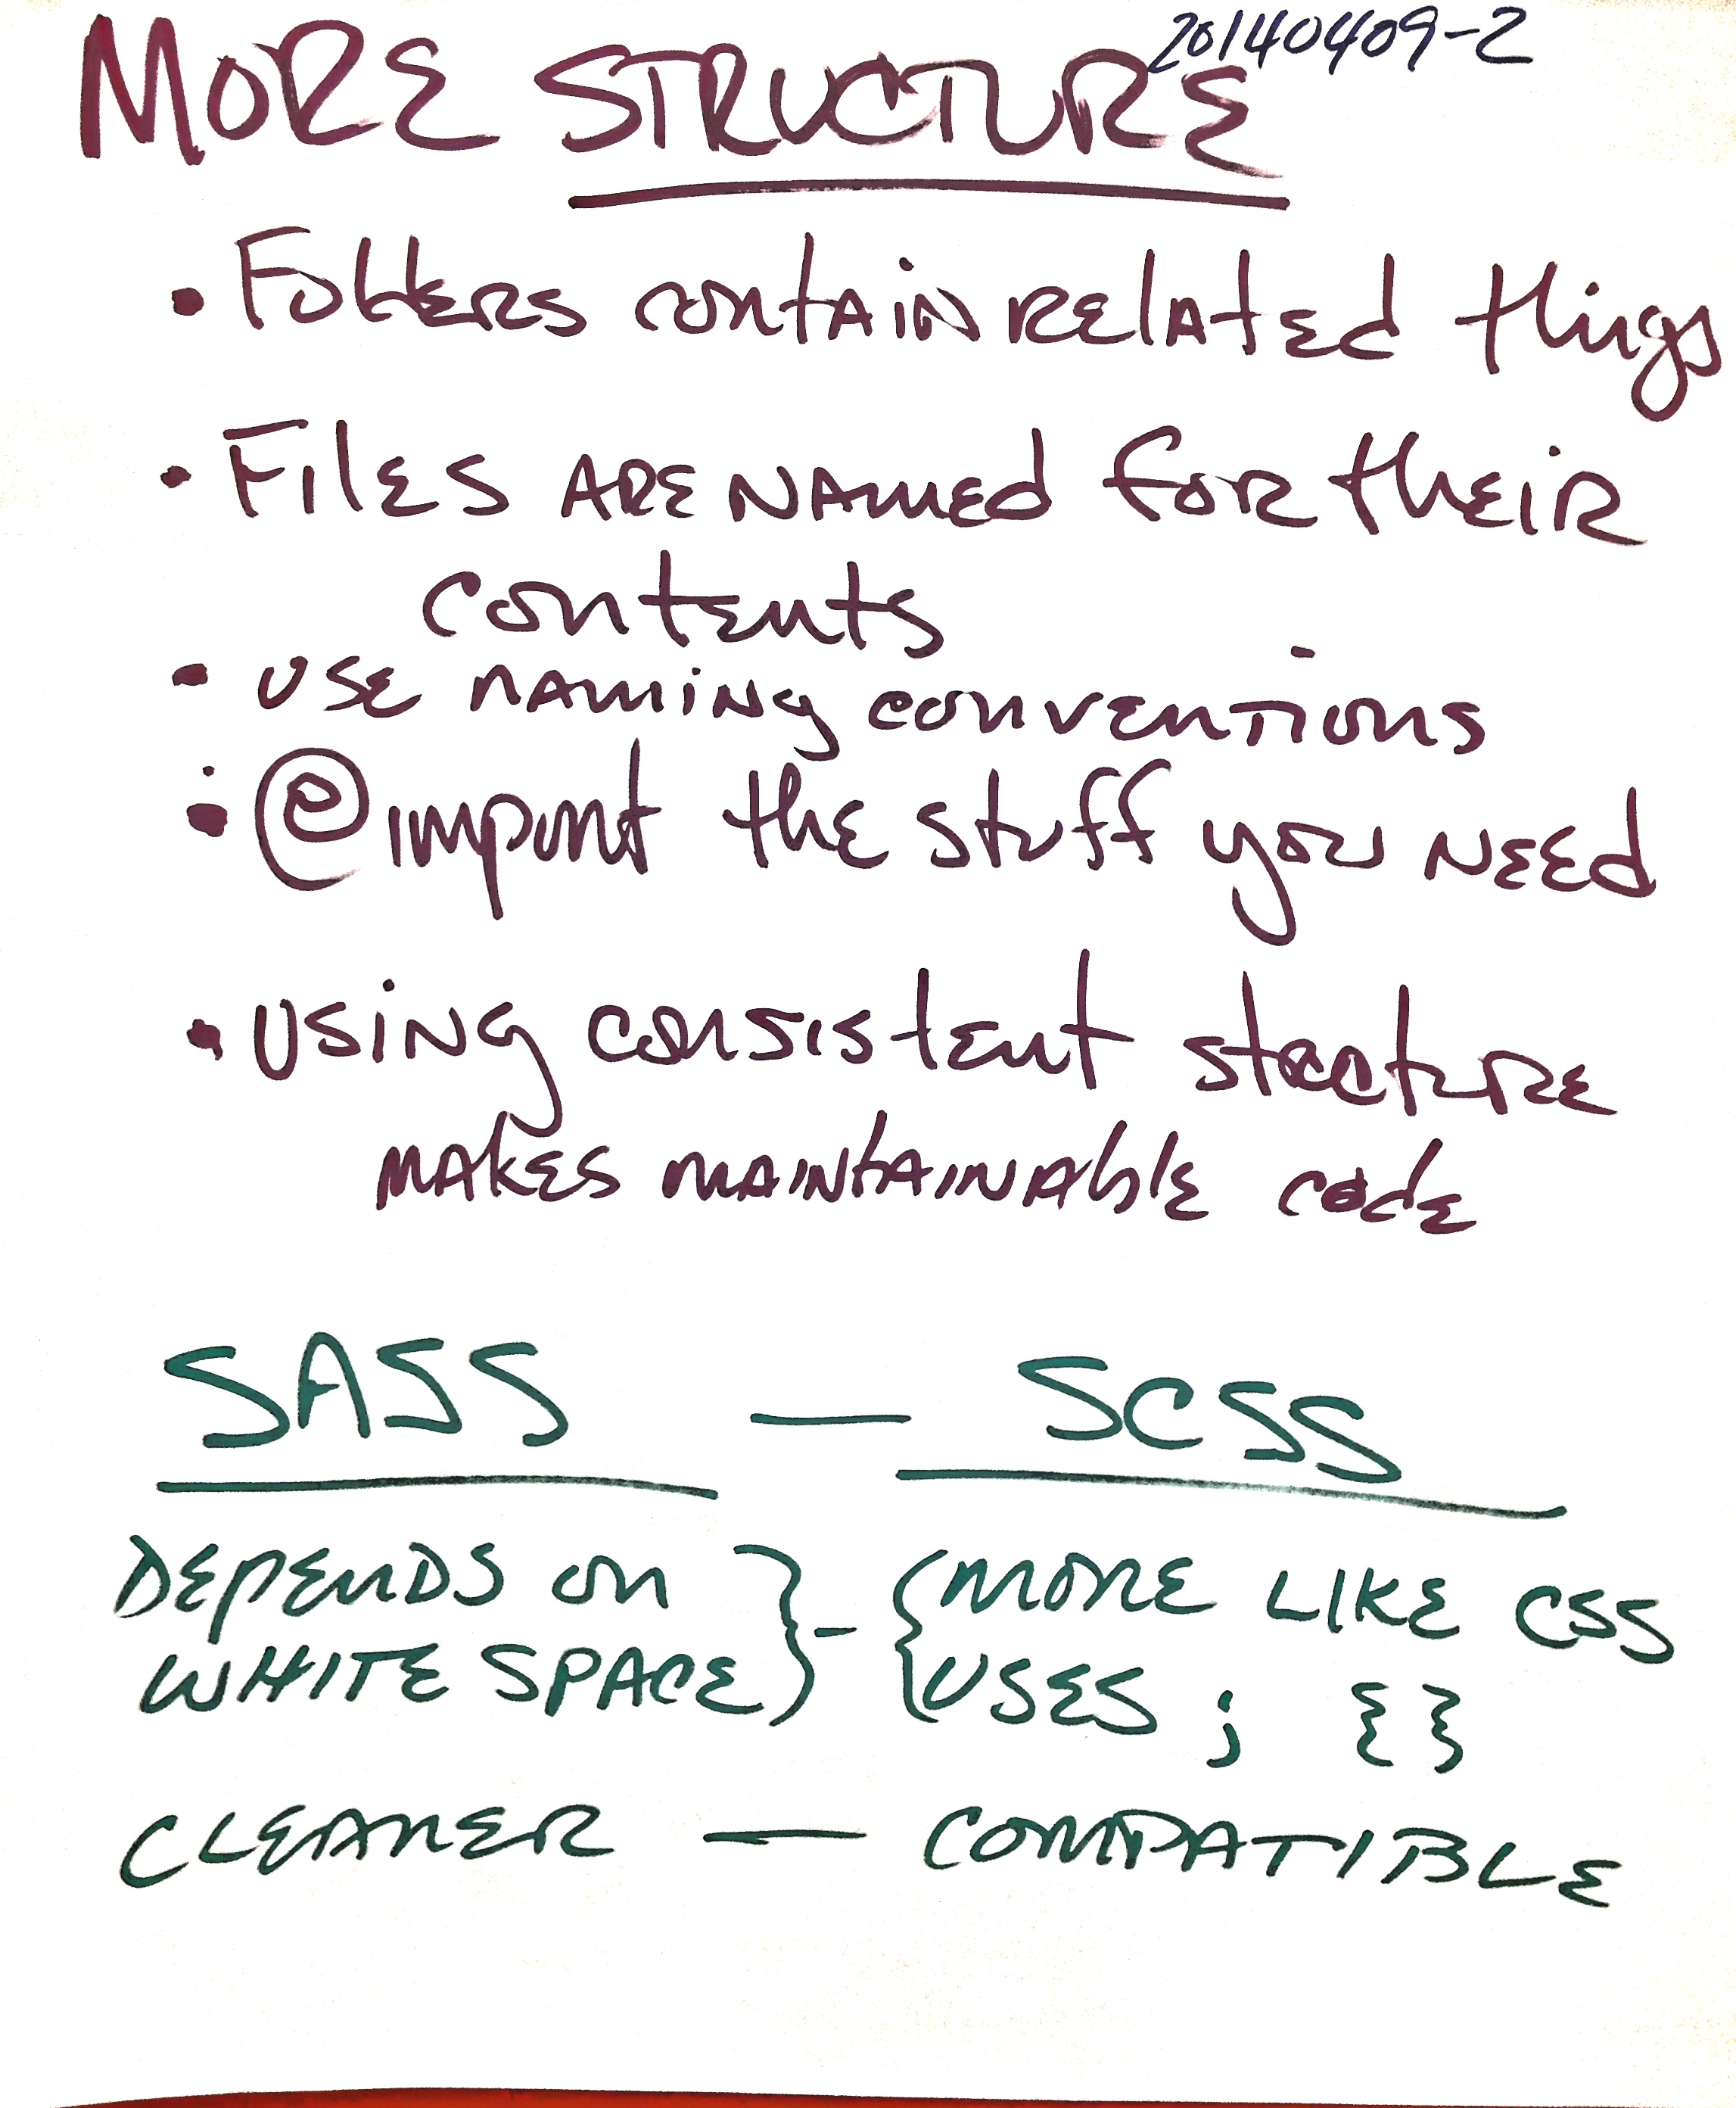 20140409-2
MORE STRUCTURE
• Folders contain related things
• Files are named for their
contents
• use naming conventions
• @import the stuff you need
• Using consistent structure
makes maintainable code
SASS — SCSS
DEPENDS ON } - { MORE LIKE CSS
WHITE SPACE USES ; {}
CLEANER — COMPATIBLE